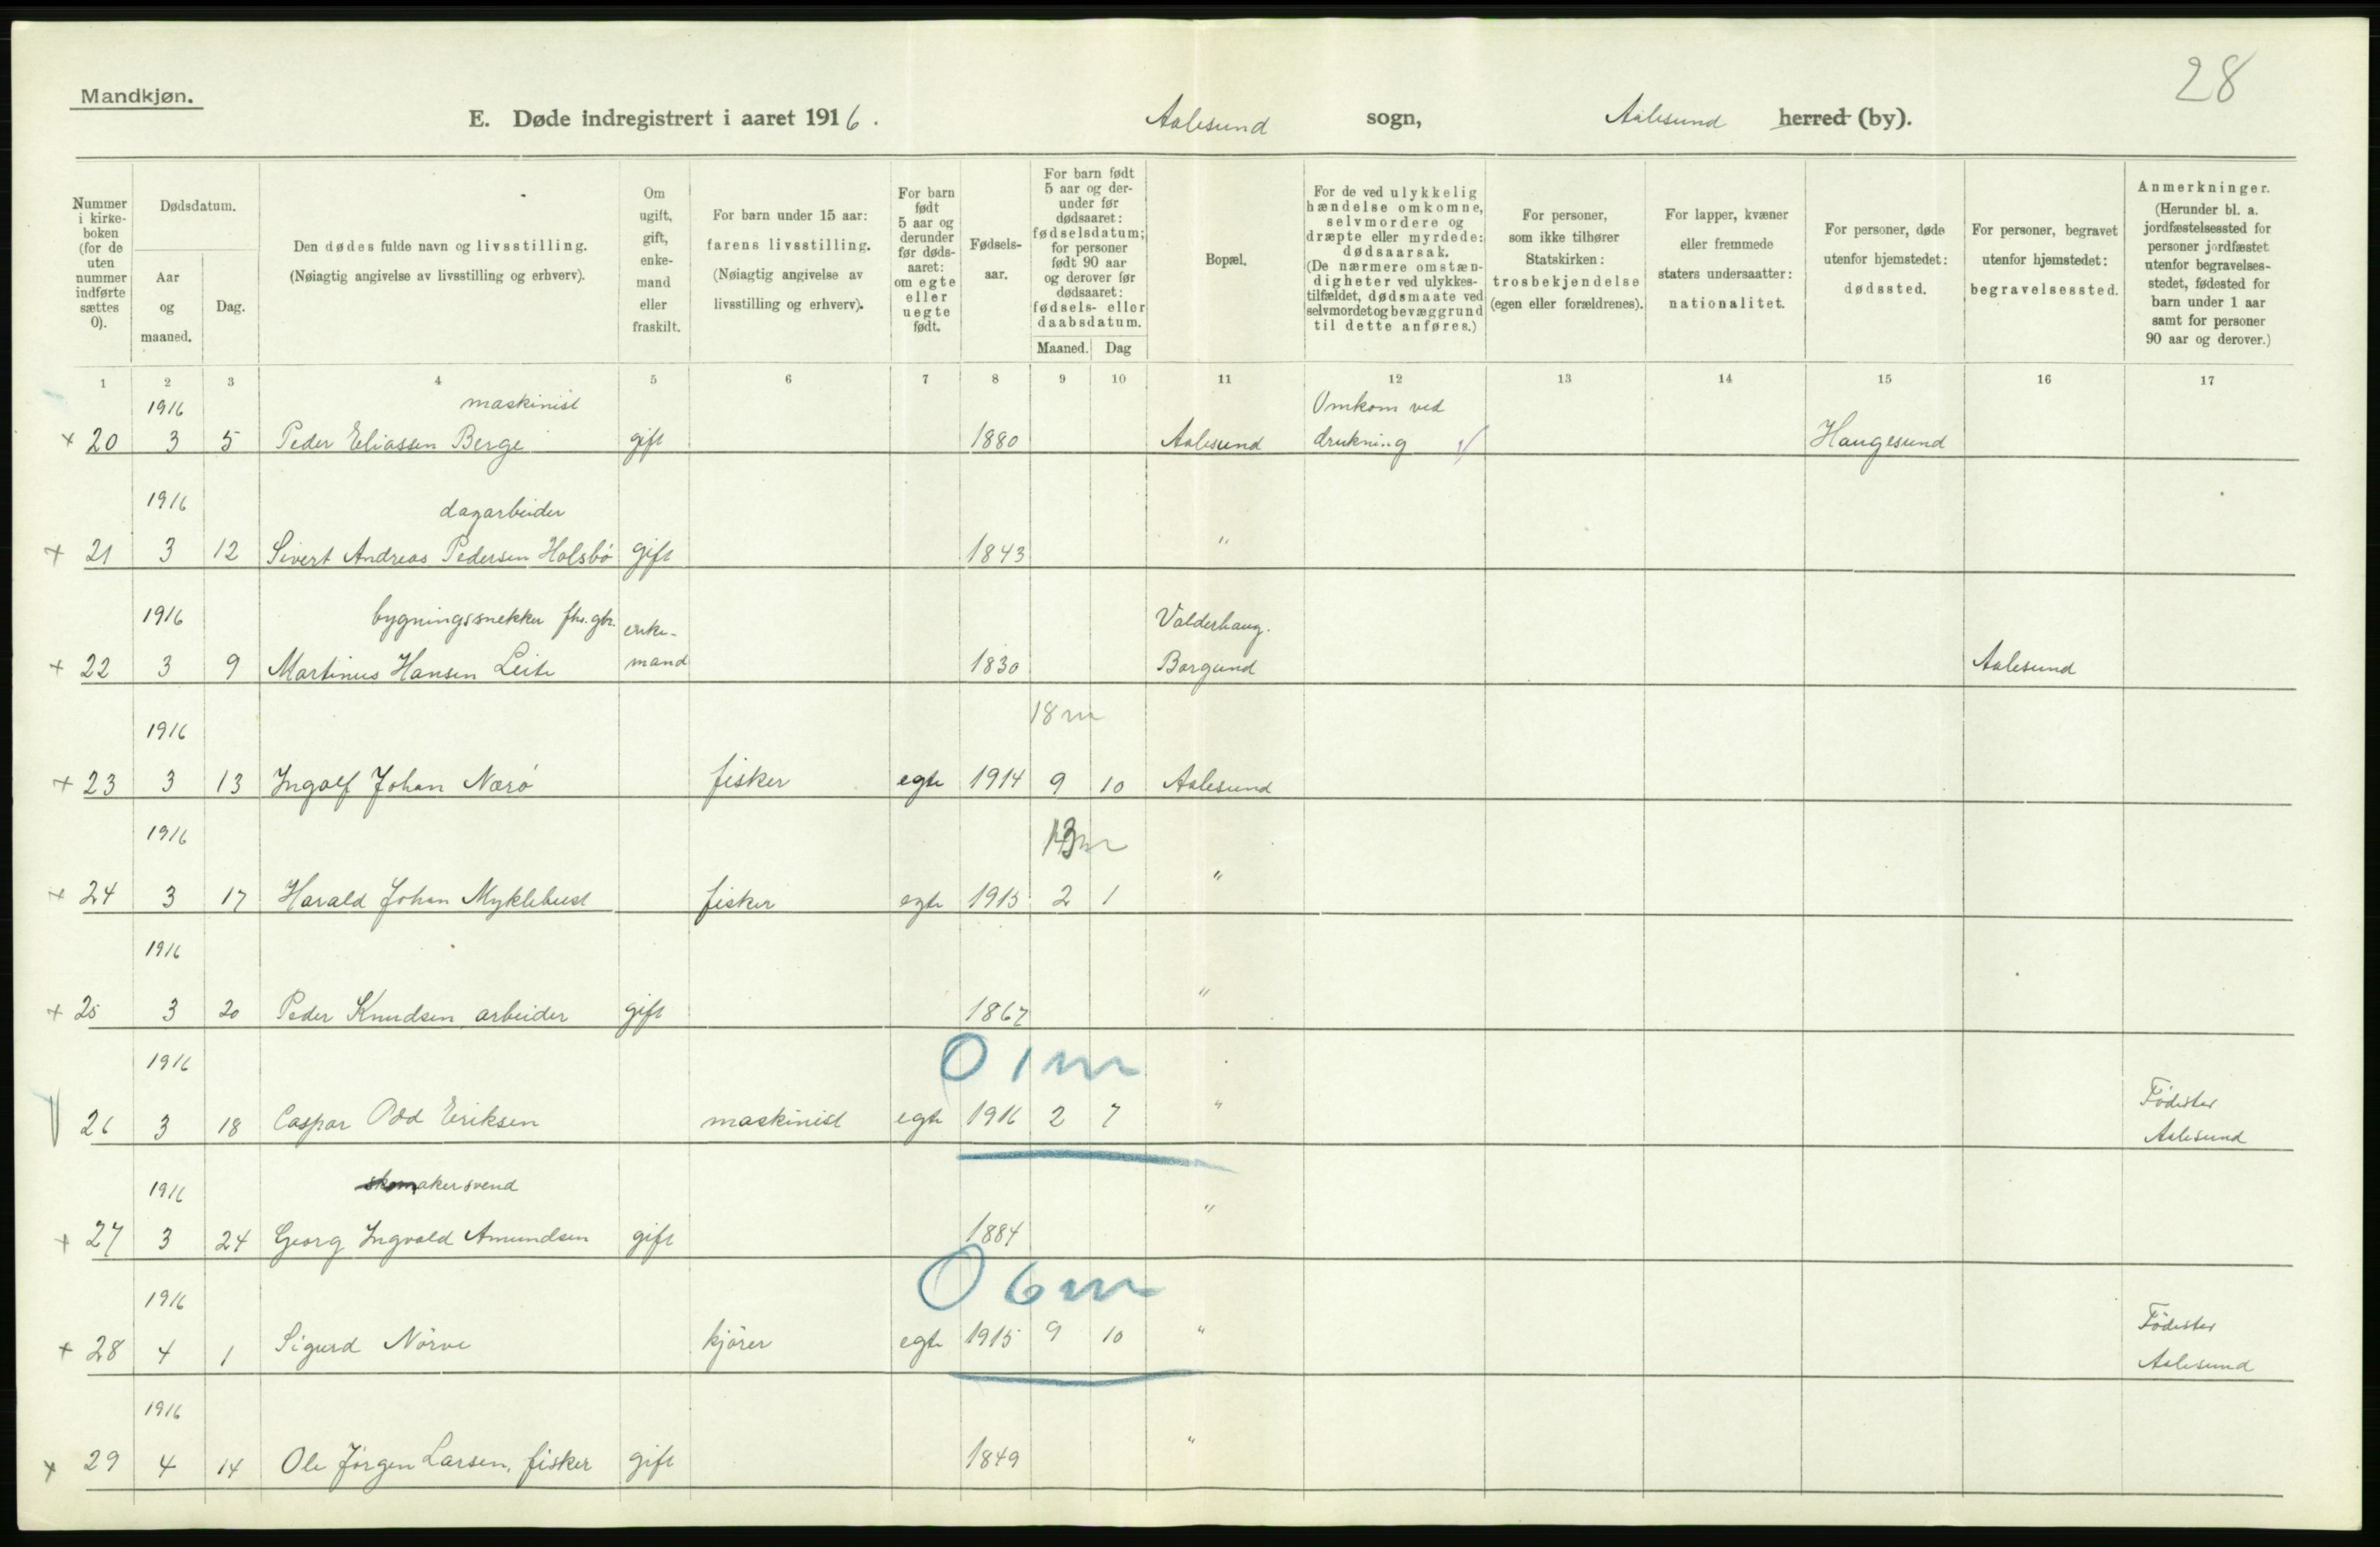 28
Mandkjøn.
E. Døde indregistrert i aaret 1916. Aalesund sogn, Aalesund herred (by).
Nummer i kirke-boken (for de uten nummer indførte sættes 0).
Dødsdatum.
Aar og maaned.
Dag.
Den dødes fulde navn og livsstilling.
(Nøiagtig angivelse av livsstilling og erhverv).
Om ugift, gift, enke-mand eller fraskilt.
For barn under 15 aar: farens livsstilling. (Nøiagtig angivelse av livsstilling og erhverv).
For barn født 5 aar og derunder før døds-aaret: om egte eller uegte født.
Fødsels-aar.
For barn født 5 aar og der-under før dødsaaret: fødselsdatum; for personer født 90 aar og derover før dødsaaret: fødsels- eller daabsdatum.
Maaned. Dag
Bopæl.
For de ved ulykkelig hændelse omkomne, selvmordere og dræpte eller myrdede: dødsaarsak. (De nærmere omstæn-digheter ved ulykkes-tilfældet, dødsmaate ved selvmordet og bevæggrund til dette anføres.)
For personer, som ikke tilhører Statskirken: trosbekjendelse (egen eller forældrenes).
For lapper, kvæner eller fremmede staters undersaatter: nationalitet.
For personer, døde utenfor hjemstedet: dødssted.
For personer, begravet utenfor hjemstedet: begravelsessted.
Anmerkninger. (Herunder bl. a. jordfæstelsessted for personer jordfæstet utenfor begravelses-stedet, fødested for barn under 1 aar samt for personer 90 aar og derover.)
1 2 3 4 5 6 7 8 9 10 11 12 13 14 15 16 17
1916 maskinist Omkom ved
+ 20 3 5 Peder Eliassen Berge gift 1880 Aalesund drukning Haugesund
1916 dagarbeider
+ 21 3 12 Sivert Andreas Pedersen Holsbö gift 1843 "
1916 bygningssnekker fhv. gbr. enke- Valderhaug.
+ 22 3 9 Martinus Hansen Leite mand 1830 Borgund Aalesund
1916 18 m
+ 23 3 13 Ingolf Johan Nærö fisker egte 1914 9 10 Aalesund
1916 13 m
+ 24 3 17 Harald Johan Myklebust fisker egte 1915 2 1 "
1916
+ 25 3 20 Peder Knudsen arbeider gift 1867 "
1916 0 1 m
26 3 18 Caspar Odd Eriksen maskinist egte 1916 2 7 " Födester Aalesund
1916 skomakersvend
+ 27 3 24 Georg Ingvald Amundsen gift 1884 "
1916 0 6 m
+ 28 4 1 Sigurd Nörve kjörer egte 1915 9 10 " Födester Aalesund
1916
+ 29 4 14 Ole Jörgen Larsen, fisker gift 1849 "